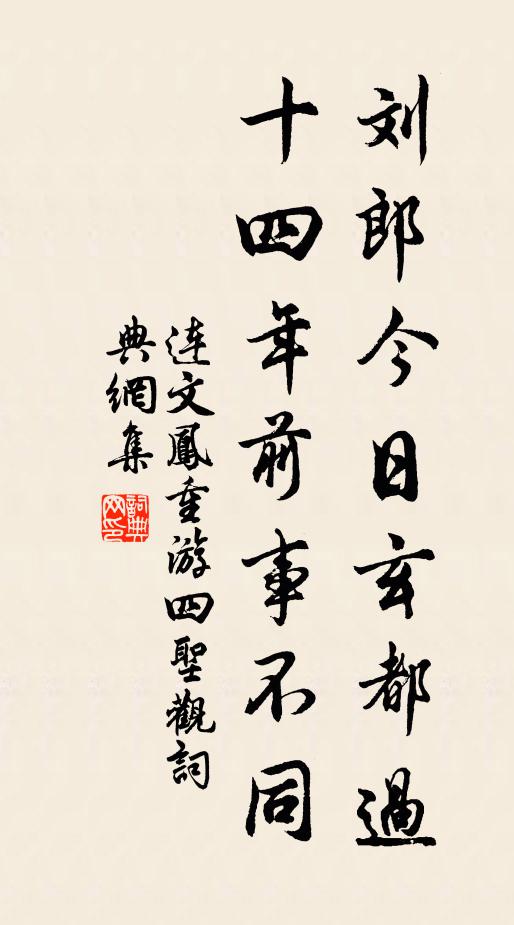 刘郎今日玄都過
十四年前事不同
连文鳳重游四聖觀詞
典網集
詞典
网印